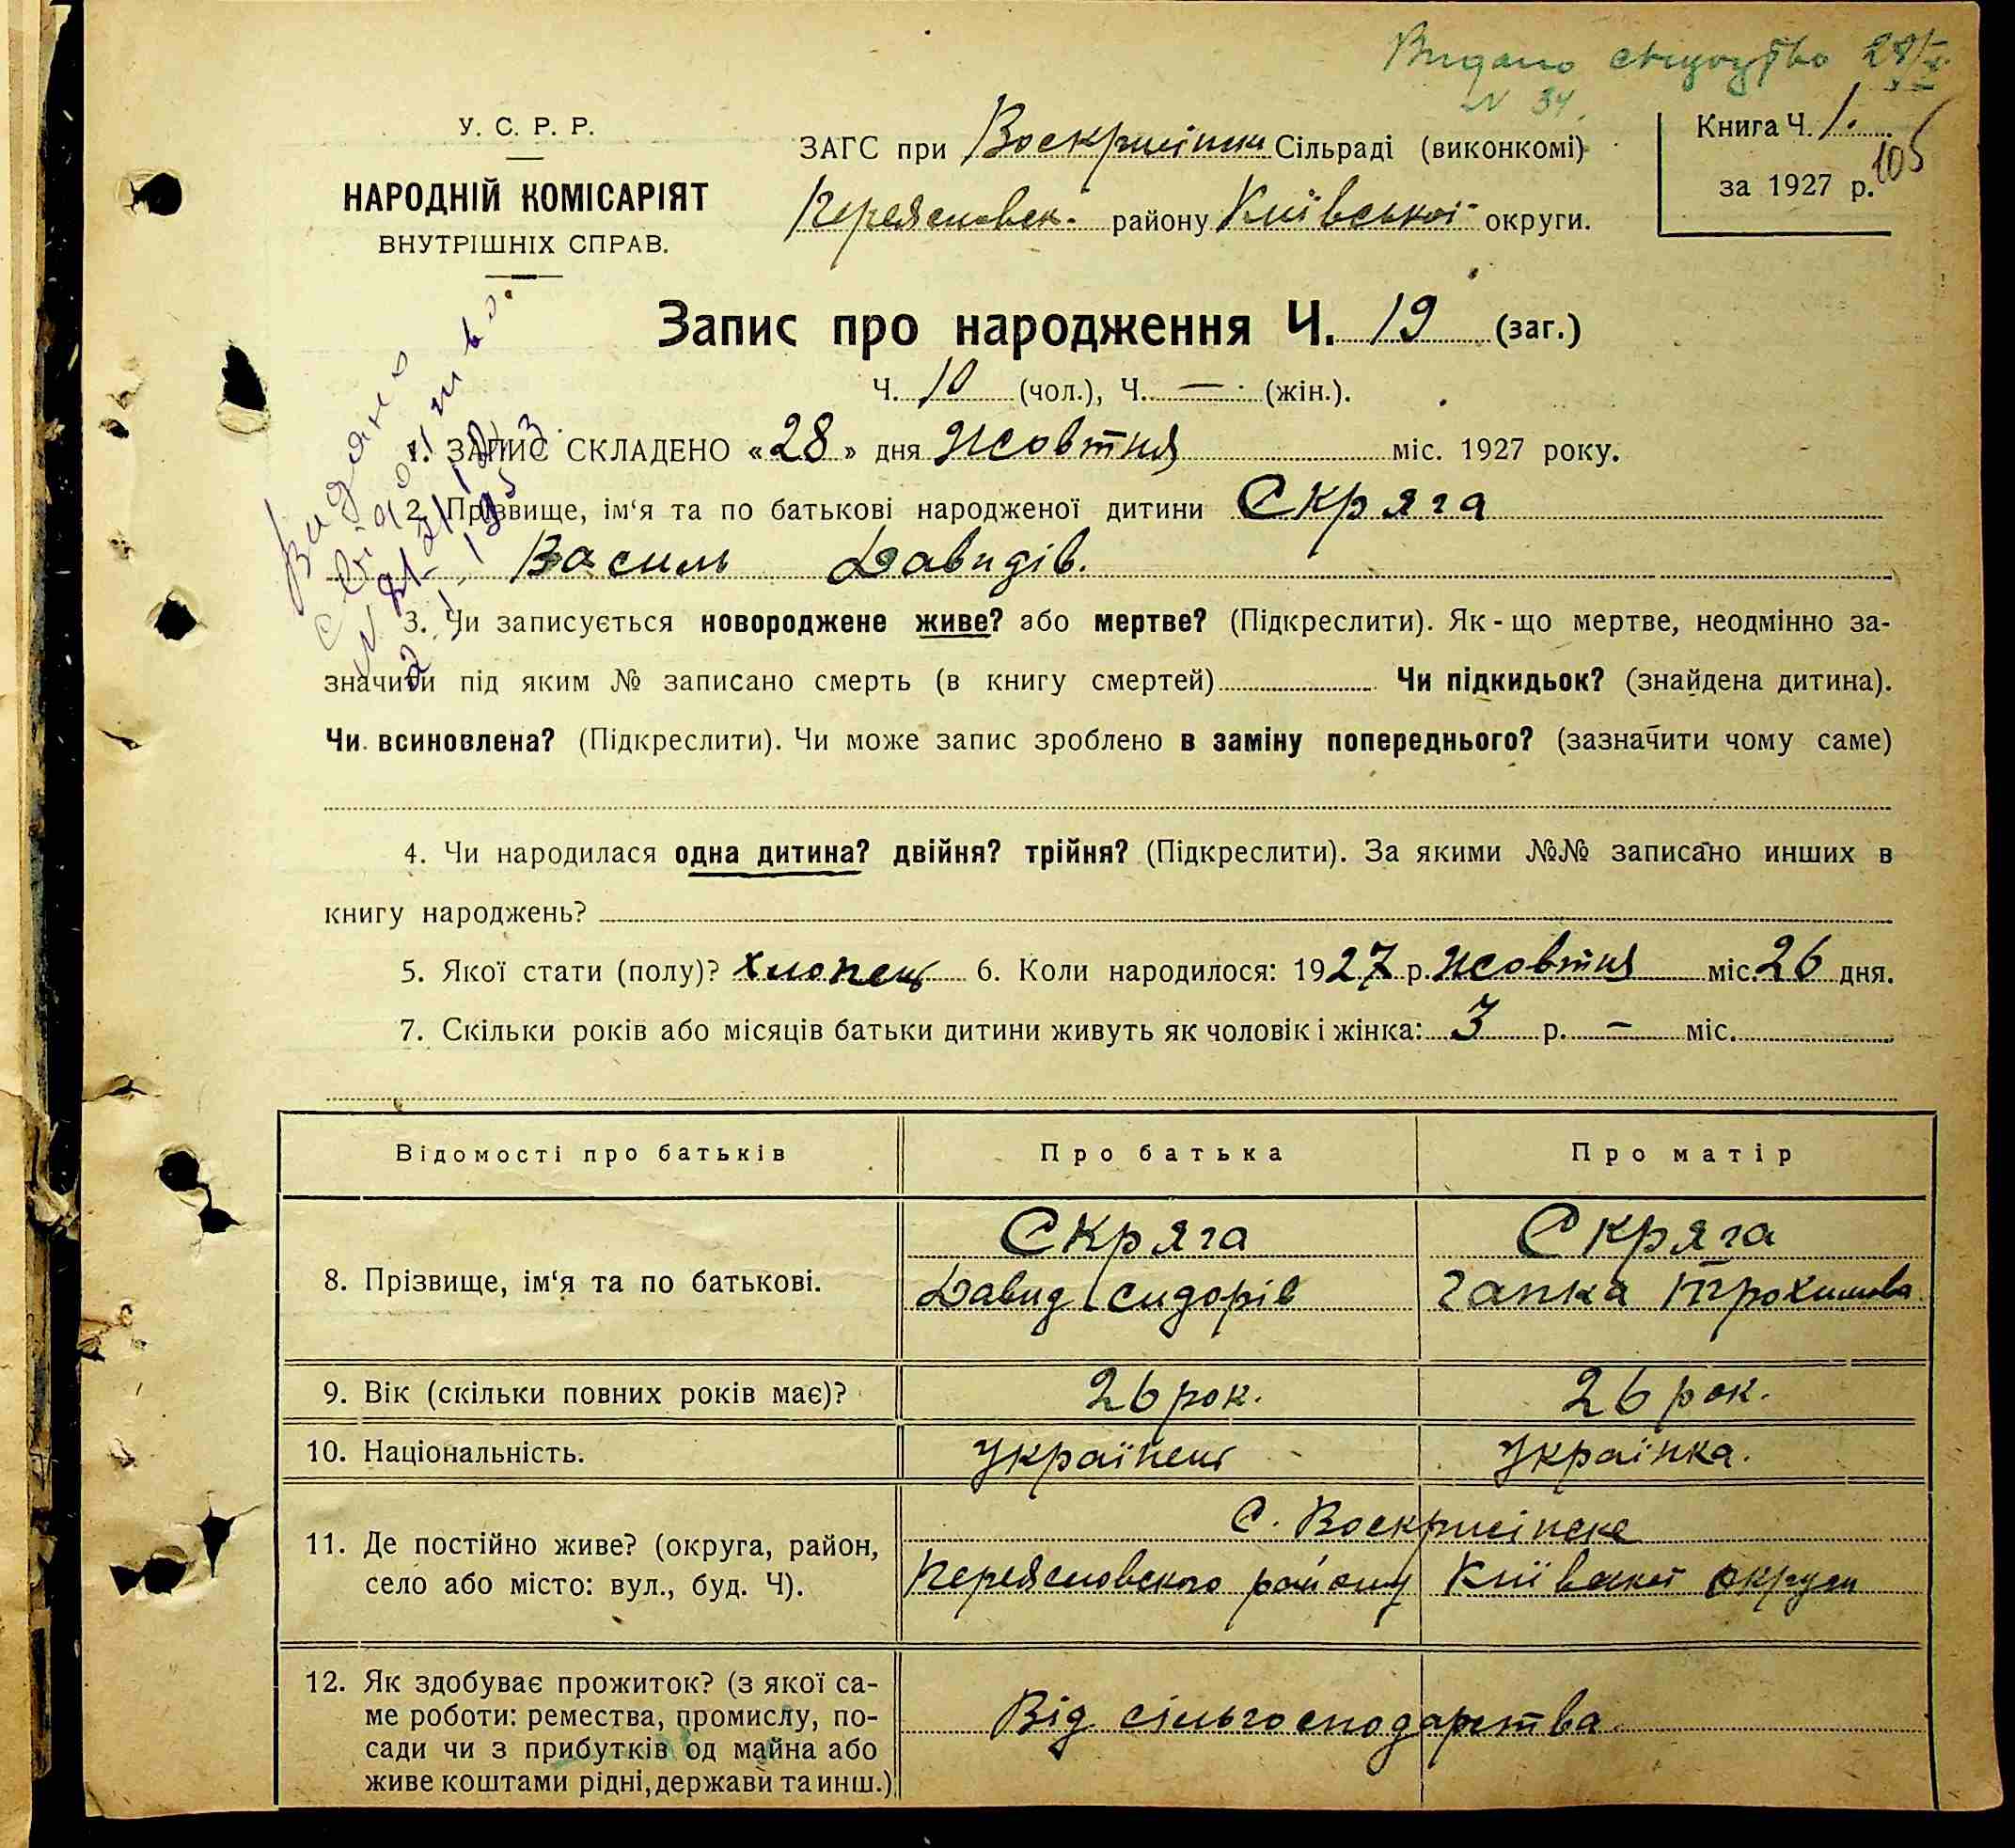 Видано свідоцтво 28/X
N 34.
У. С. Р. Р.
НАРОДНІЙ КОМІСАРІЯТ
ВНУТРІШНІХ СПРАВ.
ЗАГС при Воскрисінськ Сільраді (виконкомі)
Переясловск. району Київської округи.
Книга Ч. 1.
за 1927 р.
105
Запис про народження Ч. 19 (заг.)
Ч. 10 (чол.), Ч. — (жін.).
Видано
свідоцтво
1. ЗАПИС СКЛАДЕНО «28» дня Жовтня міс. 1927 року.
2. Прізвище, ім‘я та по батькові народженої дитини Скряга
Василь Давидів.
3. Чи записується новороджене живе? або мертве? (Підкреслити). Як-що мертве, неодмінно за-
значити під яким № записано смерть (в книгу смертей) Чи підкидьок? (знайдена дитина).
Чи всиновлена? (Підкреслити). Чи може запис зроблено в заміну попереднього? (зазначити чому саме)
4. Чи народилася одна дитина? двійня? трійня? (Підкреслити). За якими №№ записано инших в
книгу народжень?
5. Якої стати (полу)? хлопець 6. Коли народилося: 1927 р. Жовтня міс. 26 дня.
7. Скільки років або місяців батьки дитини живуть як чоловік і жінка: 3 р. — міс.
Відомості про батьків Про батька Про матір
8. Прізвище, ім‘я та по батькові. Скряга Скряга
Давид Сидорів Гапка Трохимова
9. Вік (скільки повних років має)? 26 рок. 26 рок.
10. Національність. Українець Українка.
11. Де постійно живе? (округа, район,
село або місто: вул., буд. Ч).
С. Воскрисінске
Переясловского району Київської округи
12. Як здобуває прожиток? (з якої са-
ме роботи: ремества, промислу, по-
сади чи з прибутків од майна або
живе коштами рідні, держави та инш.)
Від сільгосподарства